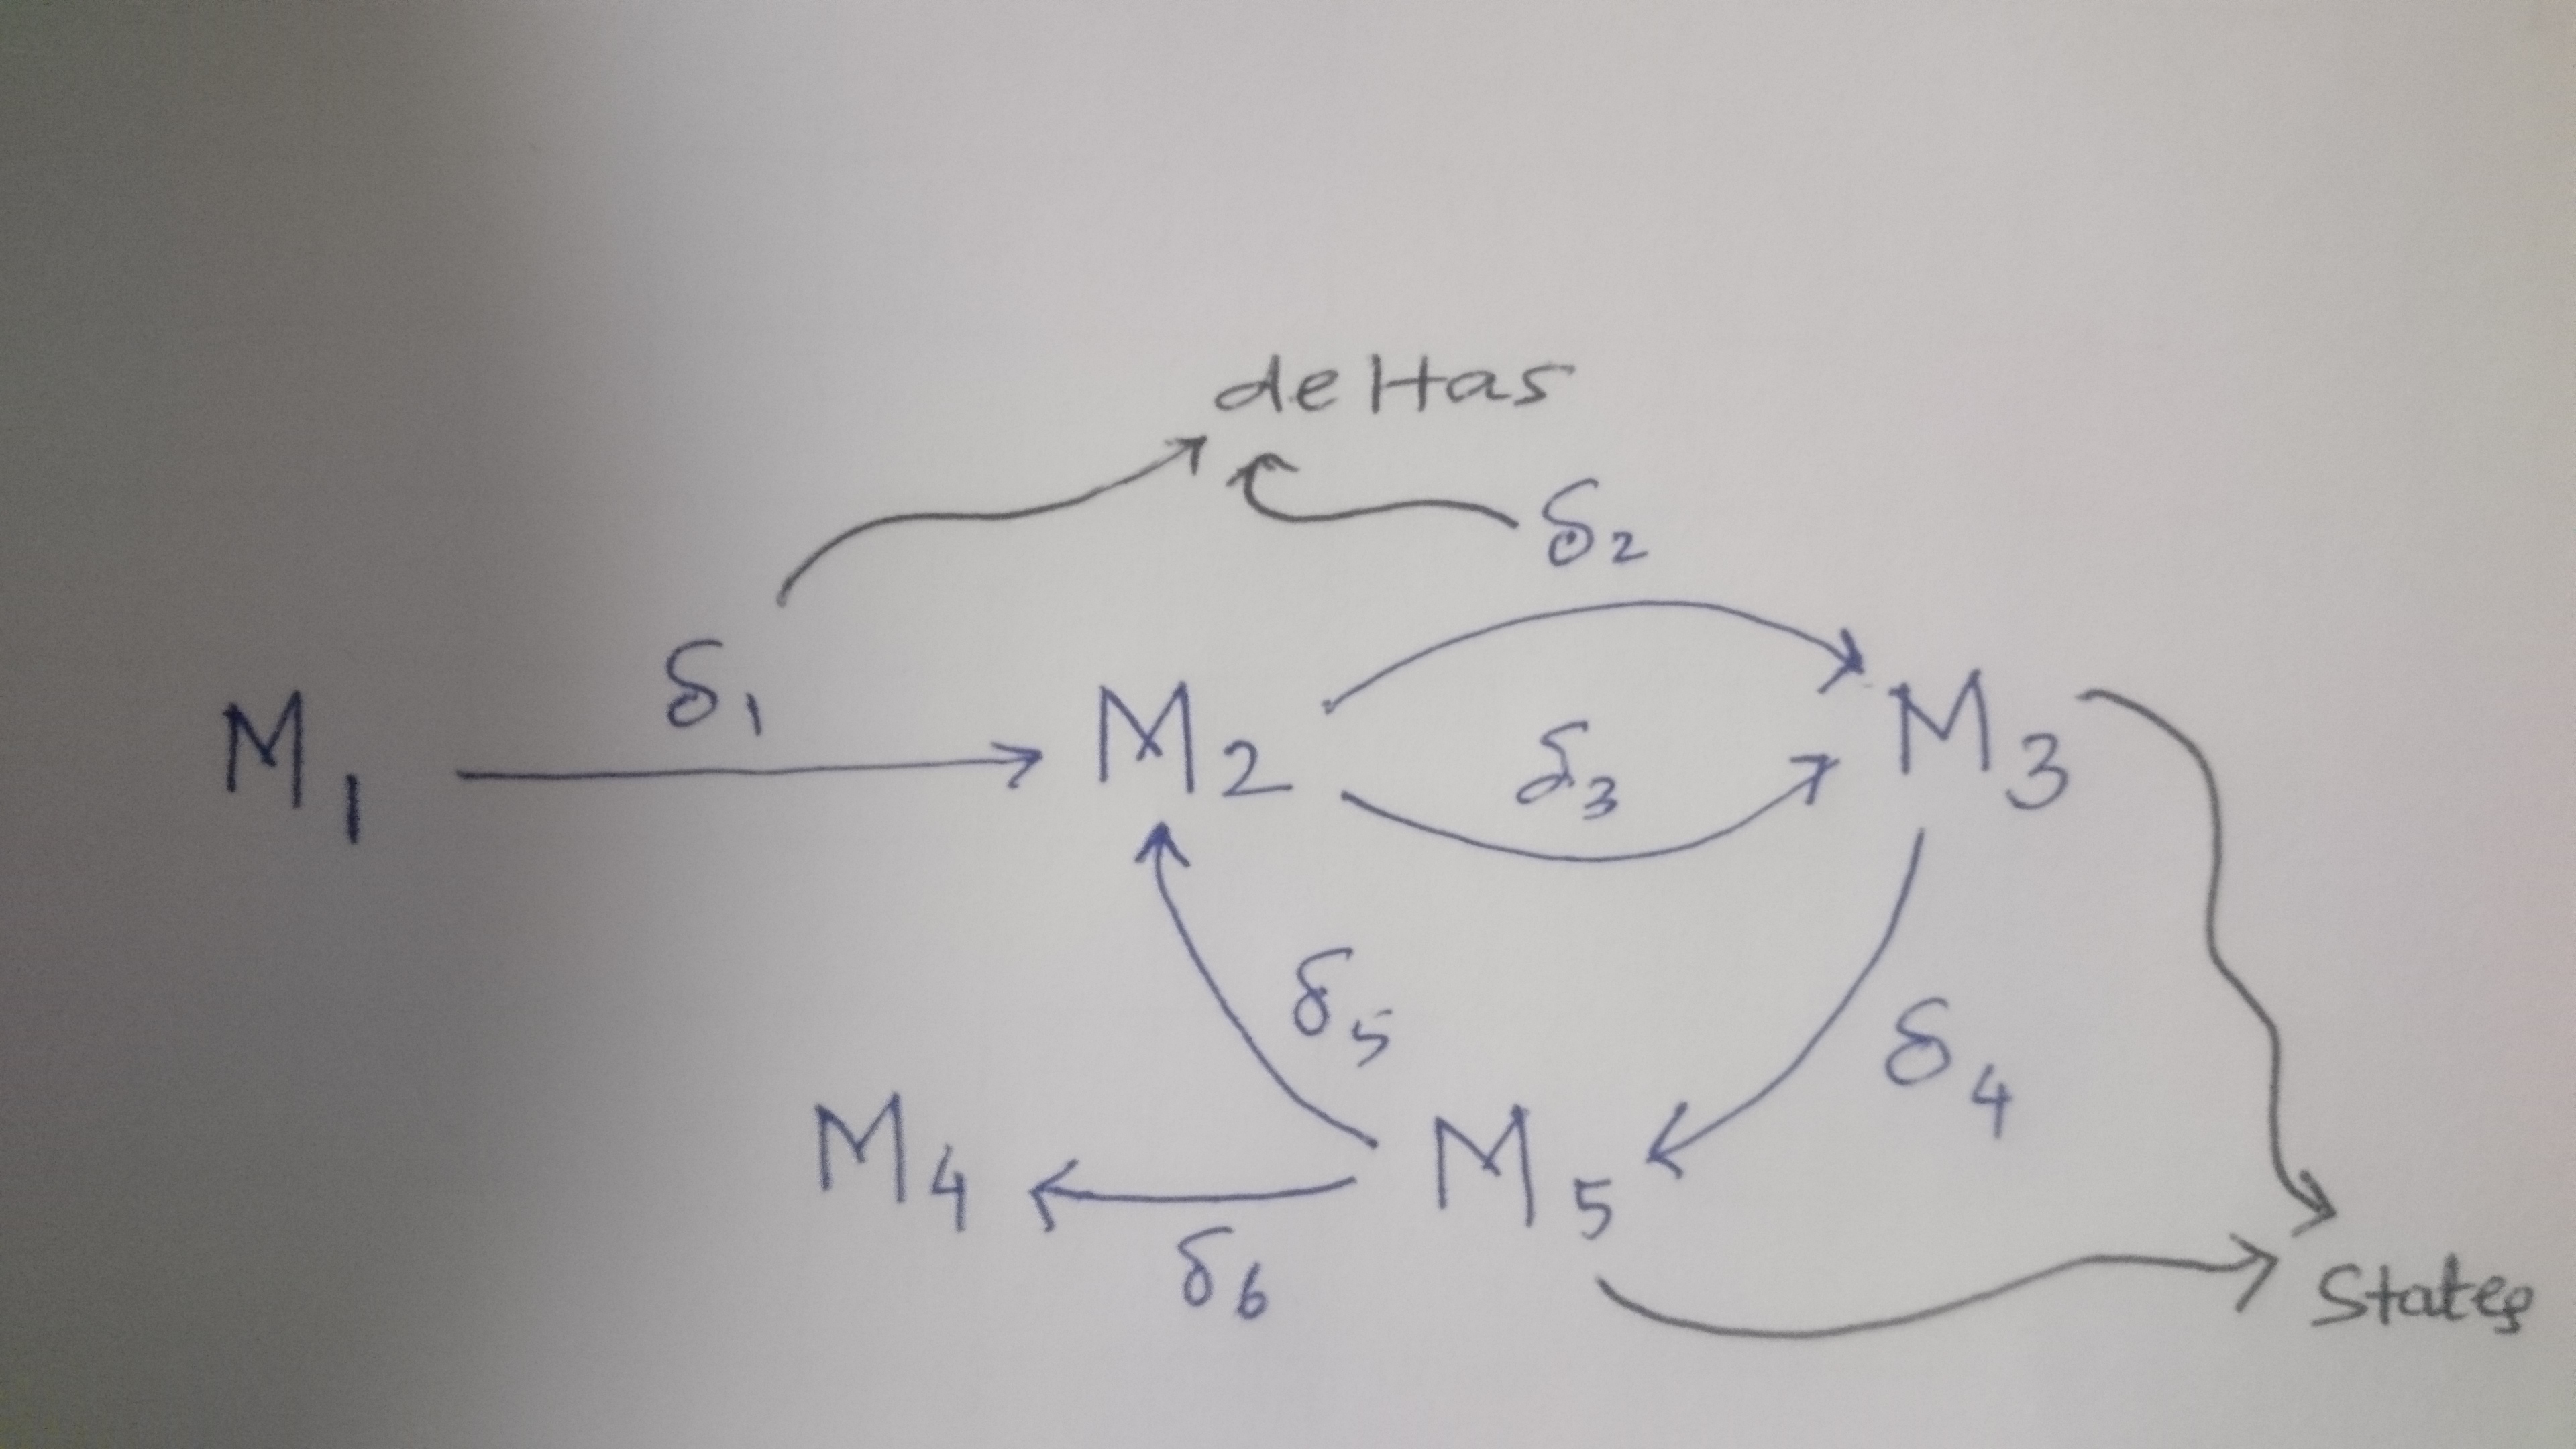 deltas
δ2
δ1
M1 M2 δ3 M3
δ5
δ4
M4 M5
δ6
States